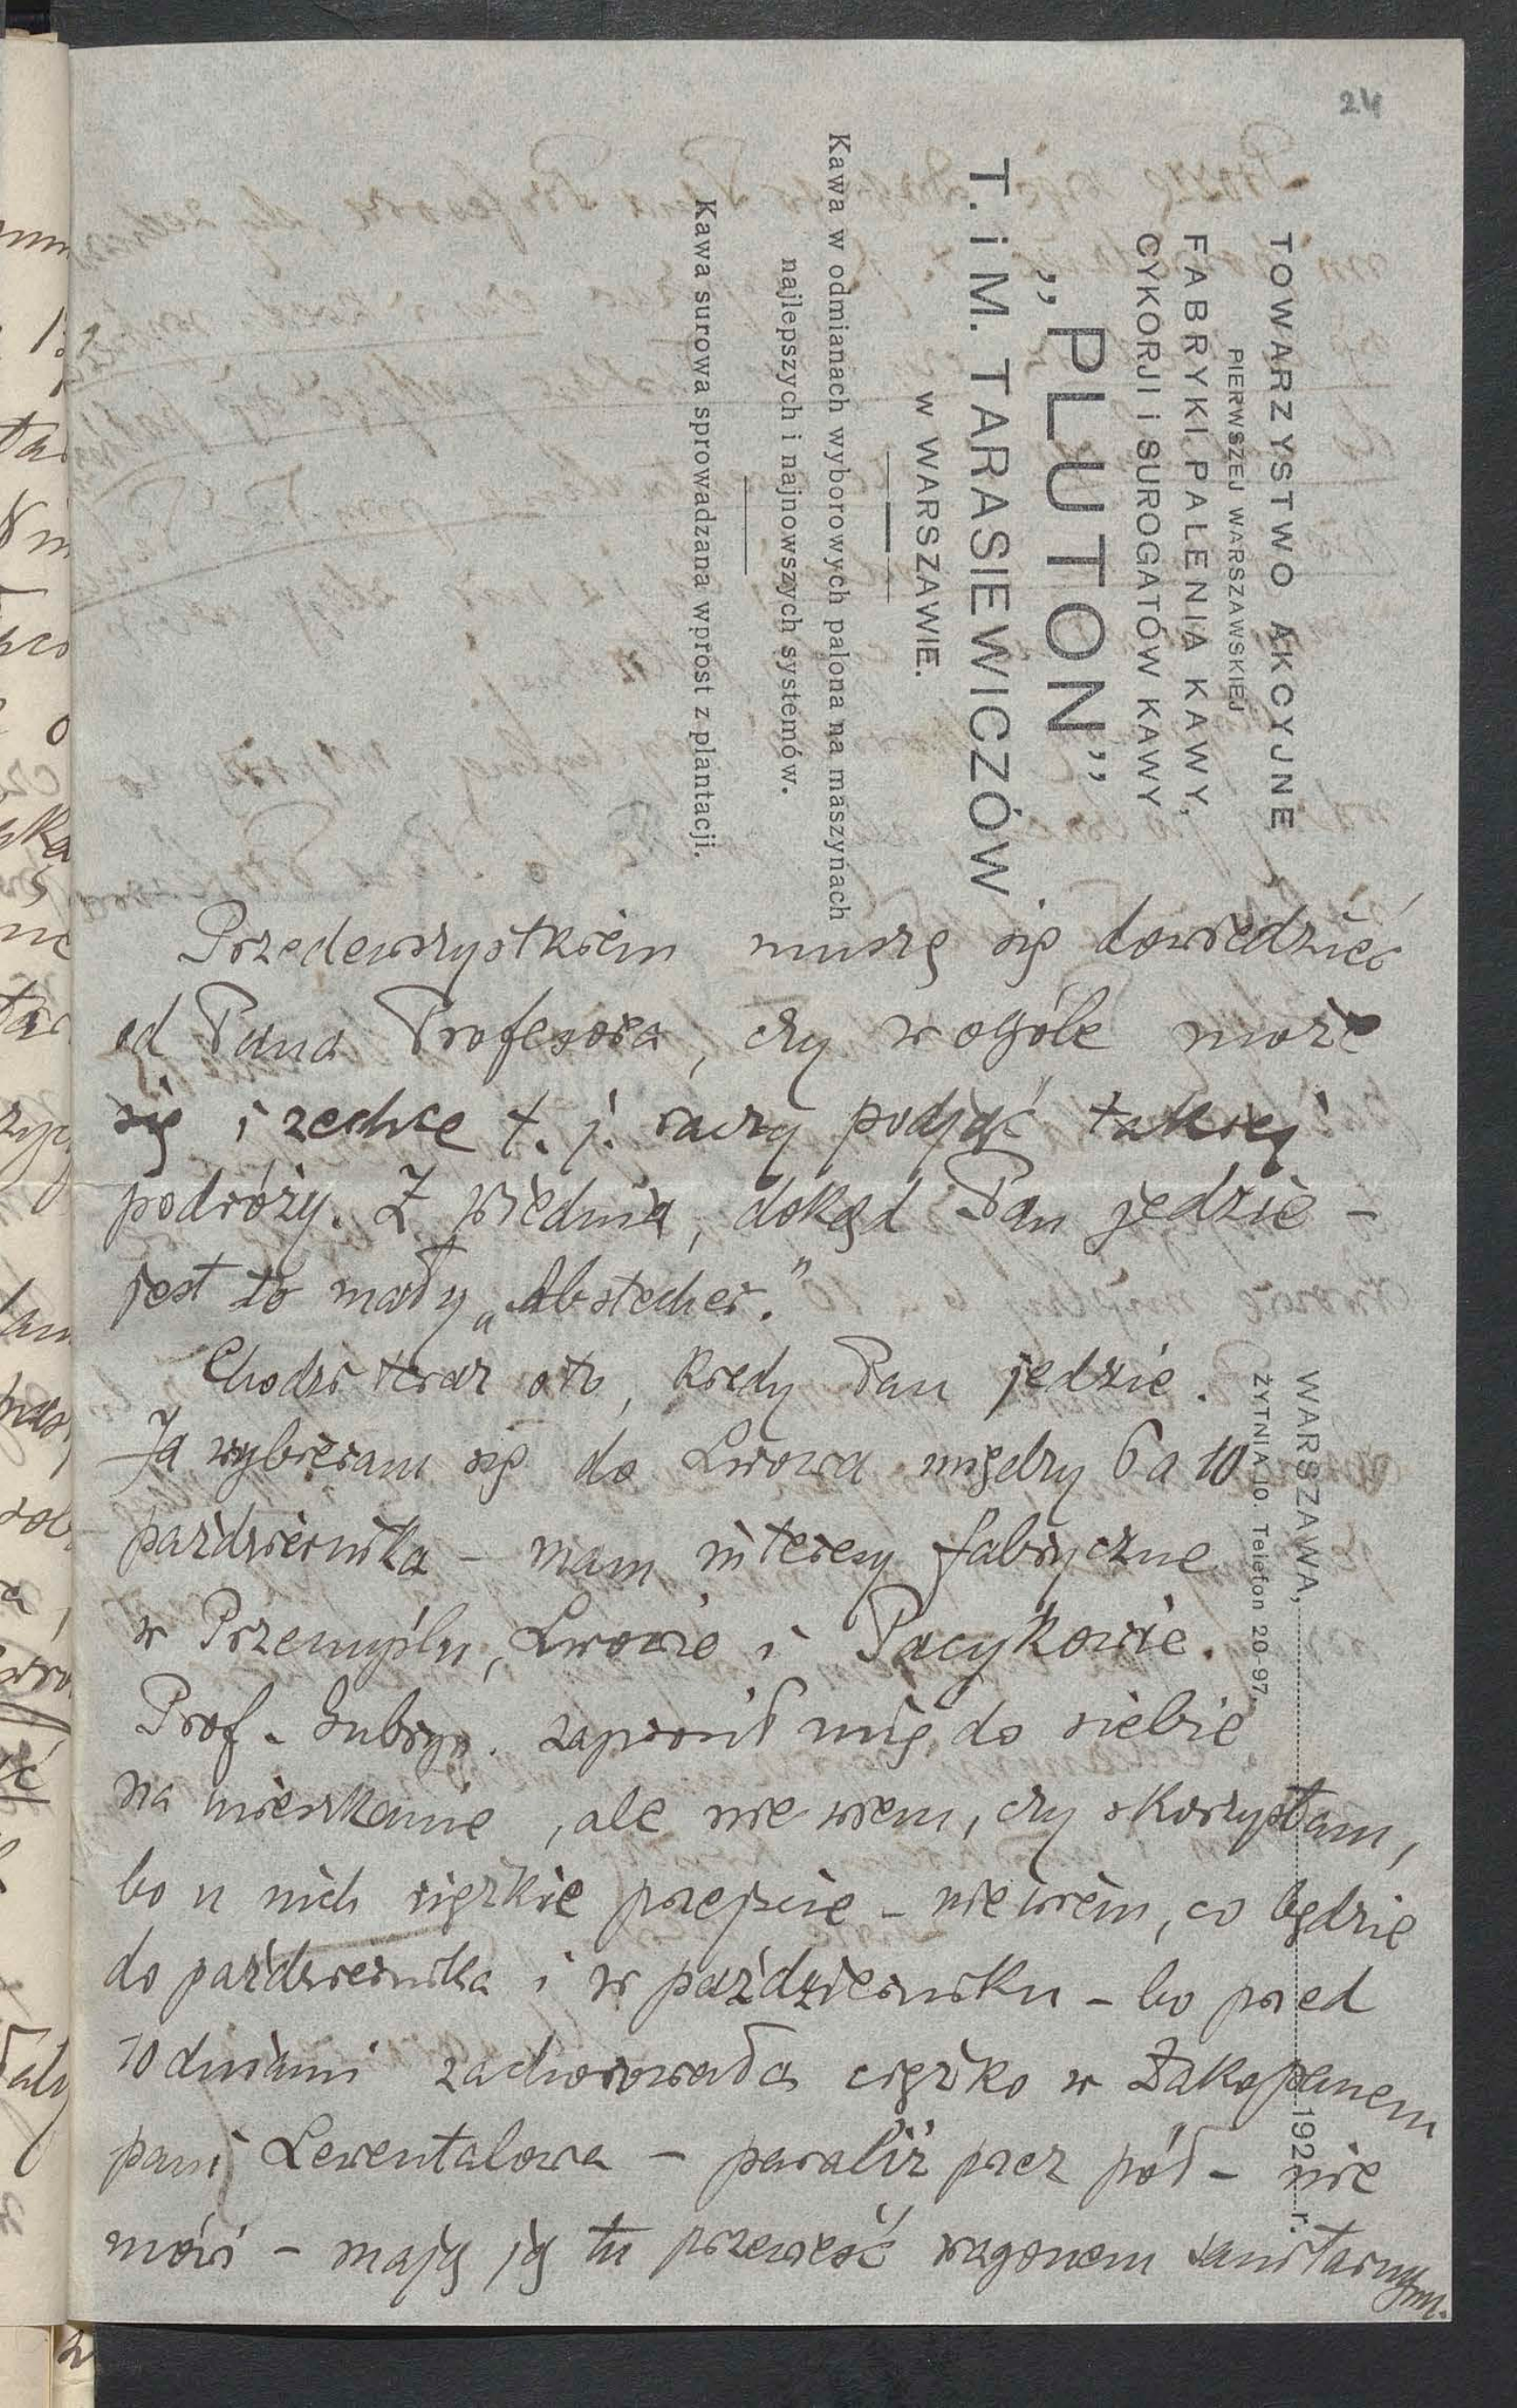 24
TOWARZYSTWO AKCYJNE
PIERWSZEJ WARSZAWSKIEJ
FABRYKI PALENIA KAWY,
CYKORJI i SUROGATÓW KAWY
„PLUTON”
T. i M. TARASIEWICZÓW
w WARSZAWIE.
Kawa w odmianach wyborowych palona na maszynach
najlepszych i najnowszych systemów.
Kawa surowa sprowadzana wprost z plantacji.
WARSZAWA, 192 r.
ŻYTNIA 10. Telefon 20-97.
Przedewszystkiem muszę się dowiedzieć
od Pana Profesora, czy w ogóle może
się i zechce t. j. raczy podjąć takiej
podróży. Z Wiednia, dokąd Pan jedzie –
jest to mały „Abstecher.”
Chodzi teraz oto, kiedy Pan jedzie.
Ja wybieram się do Lwowa między 6 a 10
października – mam interesy fabryczne
w Przemyślu, Lwowie i Pacykowie.
Prof. Gubryn. zaprosił mię do siebie
na mieszkanie, ale nie wiem, czy skorzystam,
bo u nich ciężkie przejście – nie wiem, co będzie
do października i w październiku – bo przed
10 dniami zachorowała ciężko w Zakopanem
pani Lewentalowa – paraliż przez pół – nie
mówi – mają ją tu przewieść wagonem sanitarnym.